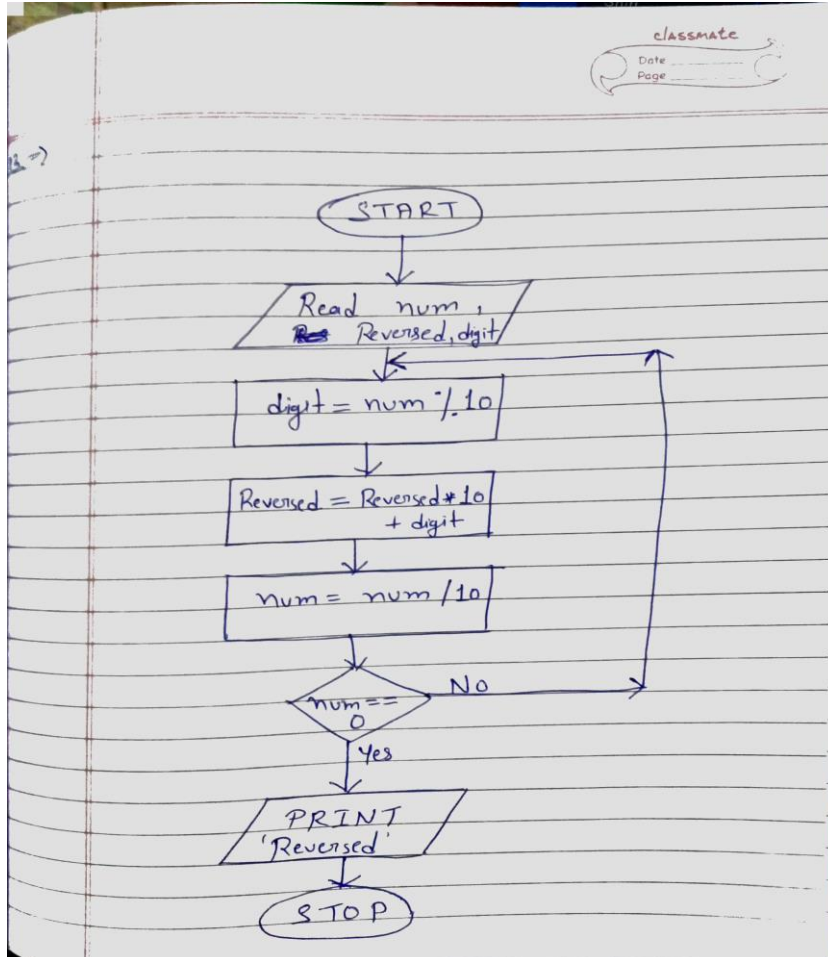 classmate
Date
Page
START
Read num,
Reversed, digit
digit = num % 10
Reversed = Reversed * 10
+ digit
num = num / 10
num ==
0
No
Yes
PRINT
'Reversed'
STOP